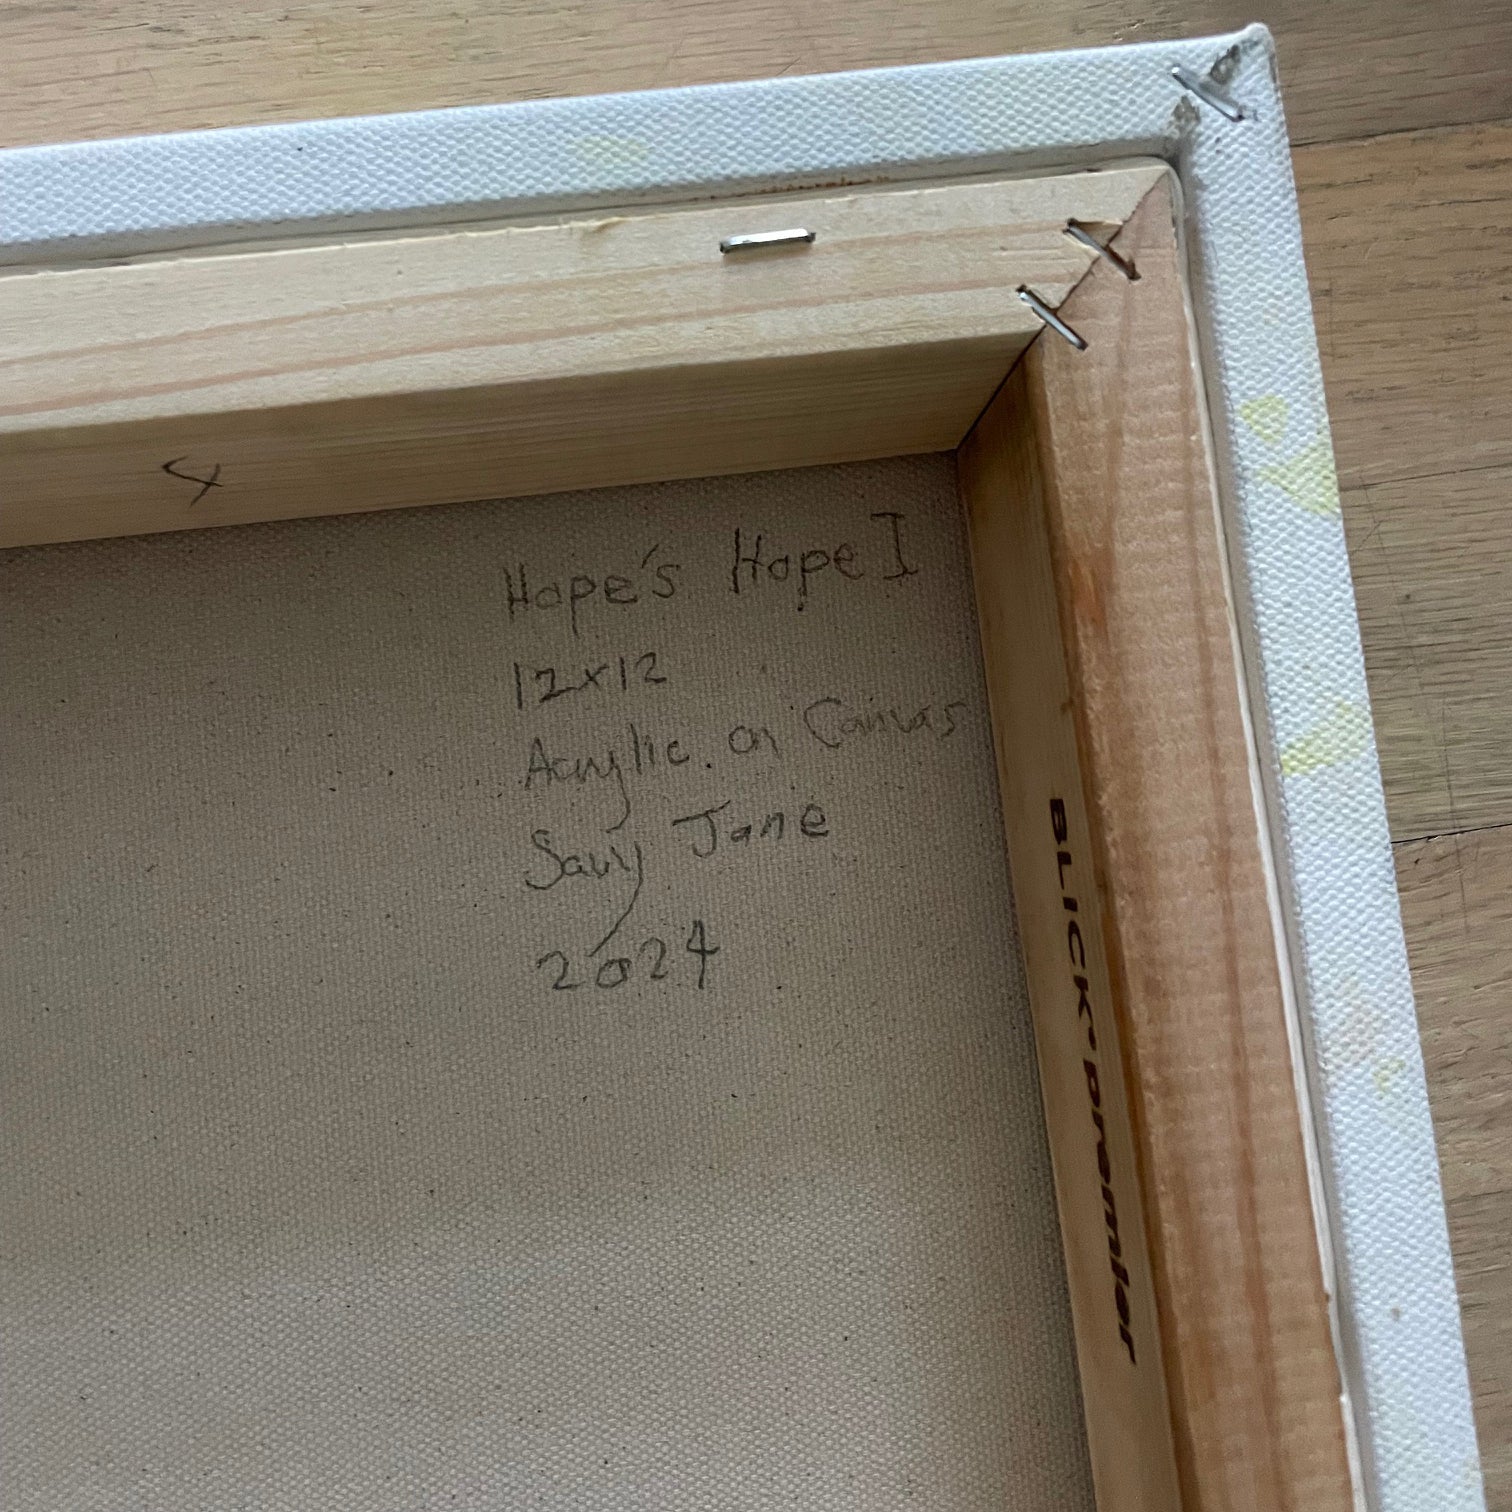 4
Hope's Hope I
12x12
Acrylic on Canvas
Savy Jane
2024
BLICK® premier